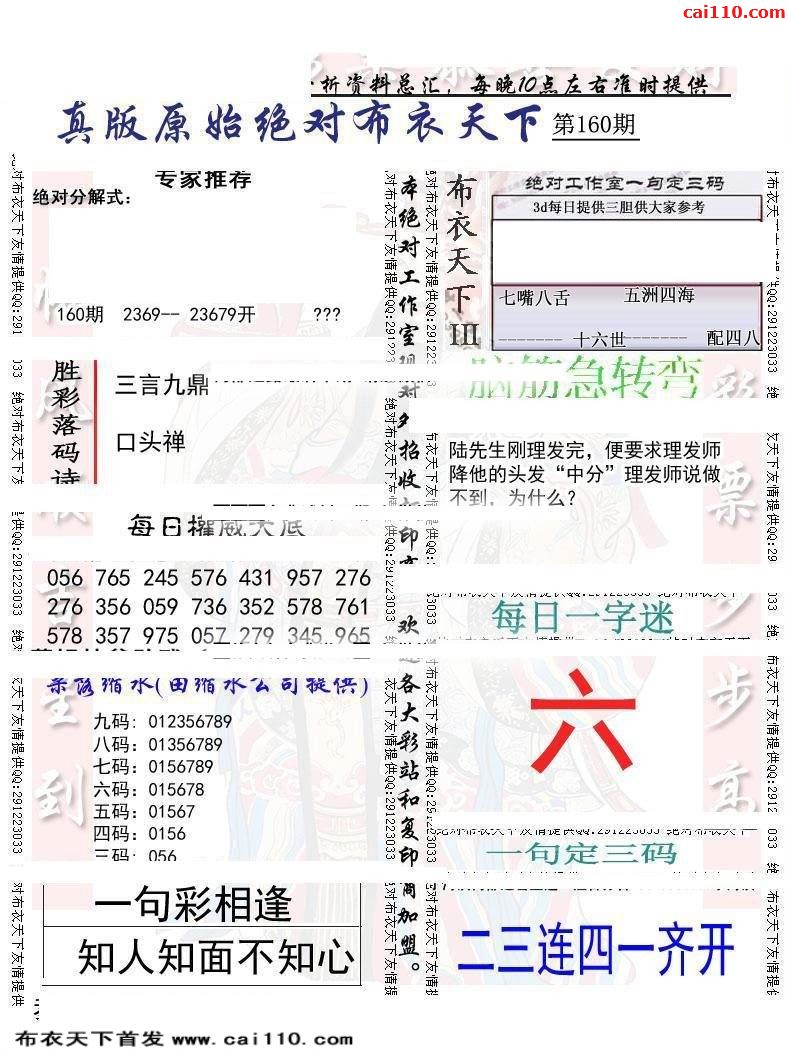 cai110.com
析资料总汇，每晚10点左右准时提供
真版原始绝对布衣天下 第160期
专家推荐
绝对分解式：
160期 2369-- 23679开 ???
胜彩落码诗
三言九鼎
口头禅
每日权威大底
056 765 245 576 431 957 276
276 356 059 736 352 578 761
578 357 975 057 279 345 965
缩水(由缩水公司提供)
九码：012356789
八码：01356789
七码：0156789
六码：015678
五码：01567
四码：0156
三码：056
一句彩相逢
知人知面不知心
本绝对工作室
招收
印
欢
各大彩站和复印
商加盟。
布衣天下III
绝对工作室一句定三码
3d每日提供三胆供大家参考
七嘴八舌 五洲四海
--------十六世------- 配四八
脑筋急转弯
陆先生刚理发完，便要求理发师
降他的头发“中分”理发师说做
不到，为什么？
每日一字迷
六
一句定三码
二三连四一齐开
绝对布衣天下友情提供QQ:291223033
彩票
步高
布衣天下首发 www.cai110.com